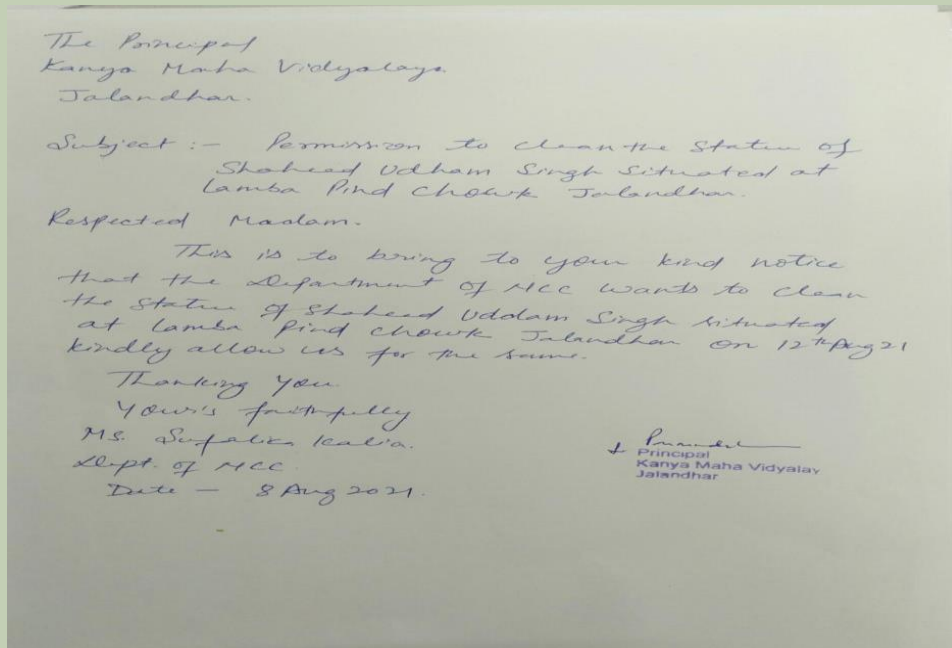 The Principal
Kanya Maha Vidyalaya
Jalandhar.
Subject :- Permission to clean the Statue of
Shaheed Udham Singh Situated at
Lamba Pind Chowk Jalandhar.
Respected Madam.
This is to bring to your kind notice
that the Department of NCC wants to clean
the statue of Shaheed Uddam Singh situated
at Lamba Pind Chowk Jalandhar on 12th Aug 21
kindly allow us for the same.
Thanking You
Your's faithfully
Ms. Sufalika Kalia.
Dept. of NCC
Date - 8 Aug 2021.
Principal
Kanya Maha Vidyalay
Jalandhar